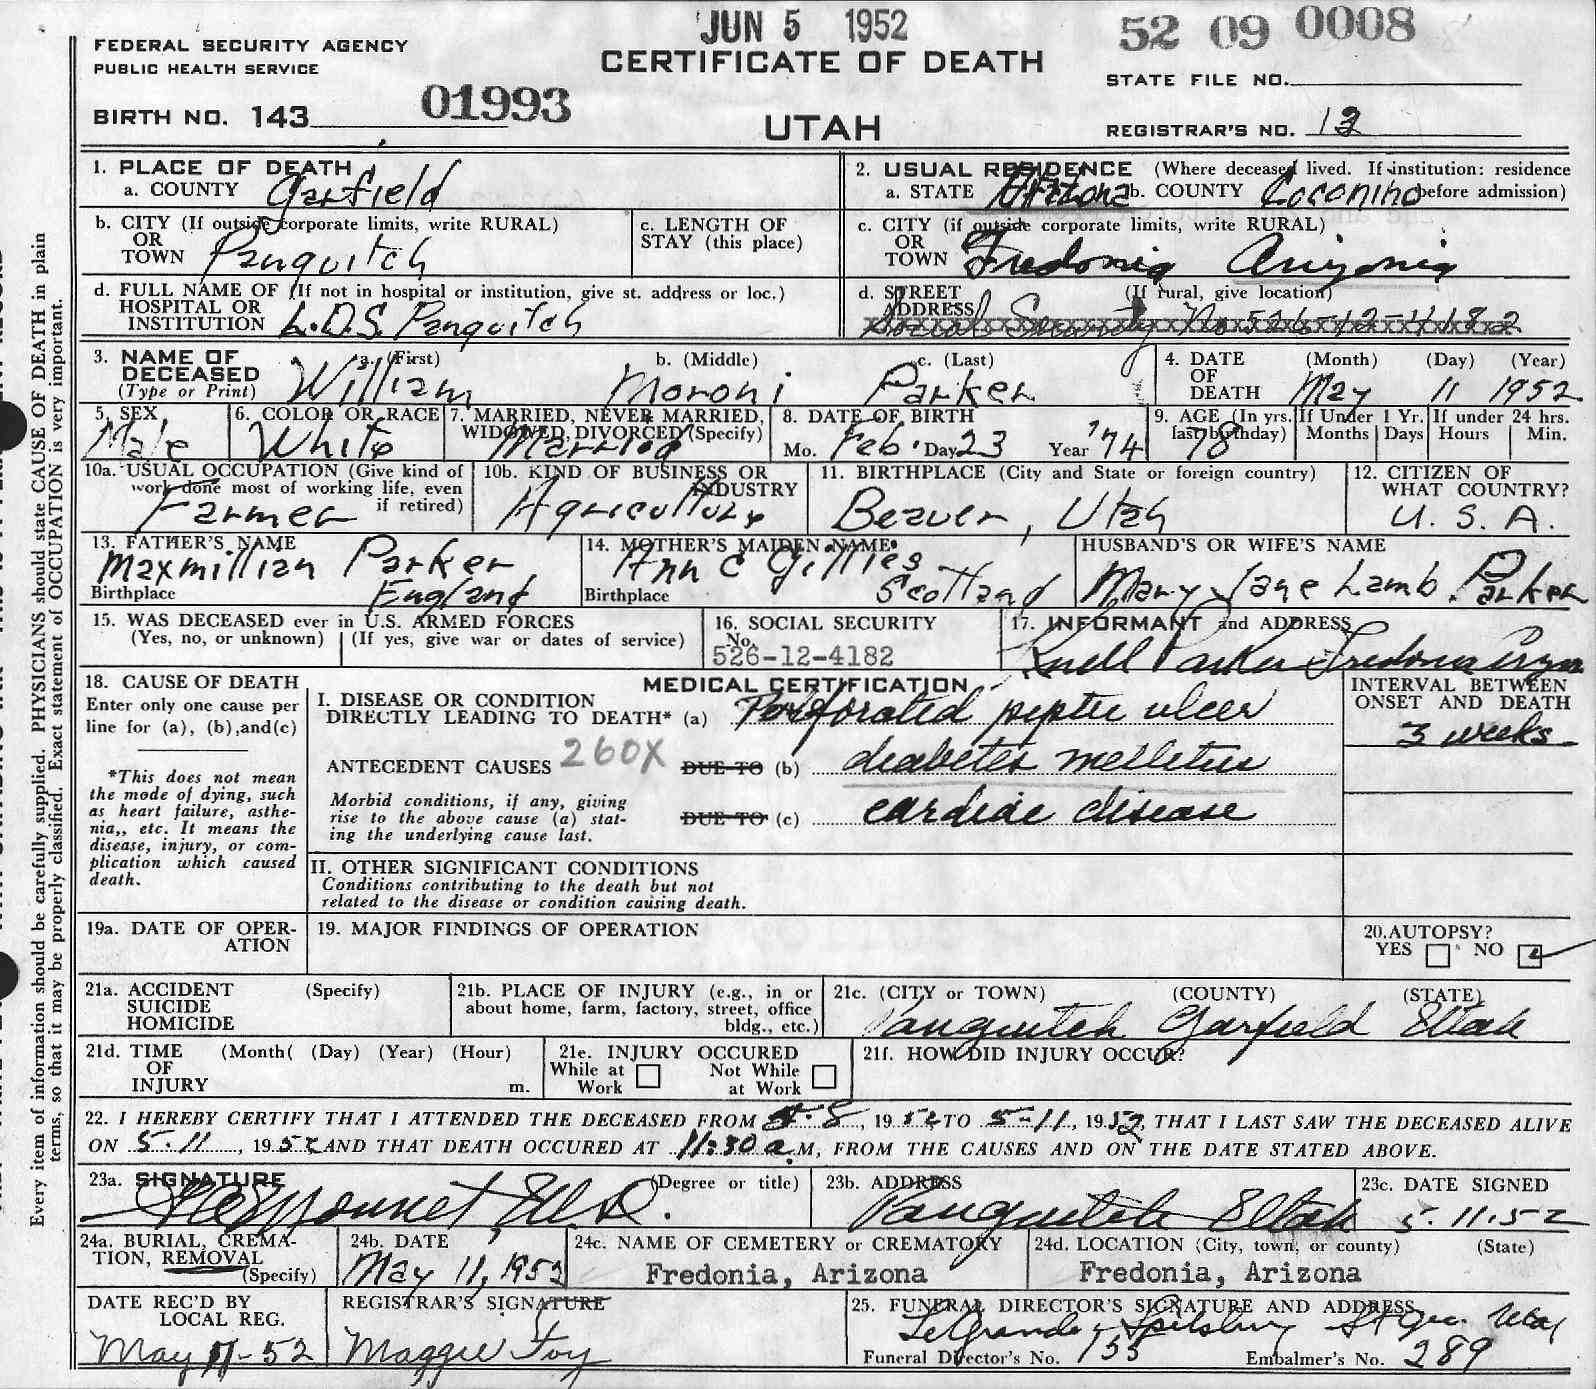 JUN 5 1952
52 09 0008
FEDERAL SECURITY AGENCY
PUBLIC HEALTH SERVICE
CERTIFICATE OF DEATH
STATE FILE NO.
BIRTH NO. 143 01993
UTAH
REGISTRAR'S NO. 13
1. PLACE OF DEATH
a. COUNTY Garfield
2. USUAL RESIDENCE (Where deceased lived. If institution: residence before admission)
a. STATE Arizona b. COUNTY Coconino
b. CITY (If outside corporate limits, write RURAL)
OR
TOWN Panguitch
c. LENGTH OF
STAY (this place)
c. CITY (if outside corporate limits, write RURAL)
OR
TOWN Fredonia Arizonia
d. FULL NAME OF (If not in hospital or institution, give st. address or loc.)
HOSPITAL OR
INSTITUTION L.D.S. Panquitch
d. STREET (If rural, give location)
ADDRESS
Social Security No
3. NAME OF
DECEASED
(Type or Print)
a. (First) William
b. (Middle) Moroni
c. (Last) Parker
4. DATE
OF
DEATH
(Month) (Day) (Year)
May 11 1952
5. SEX
Male
6. COLOR OR RACE
White
7. MARRIED, NEVER MARRIED,
WIDOWED, DIVORCED (Specify)
Married
8. DATE OF BIRTH
Mo. Feb. Day 23 Year '74
9. AGE (In yrs.
last birthday)
78
If Under 1 Yr.
Months Days
If under 24 hrs.
Hours Min.
10a. USUAL OCCUPATION (Give kind of
work done most of working life, even
if retired)
Farmer
10b. KIND OF BUSINESS OR
INDUSTRY
Agriculture
11. BIRTHPLACE (City and State or foreign country)
Beaver, Utah
12. CITIZEN OF
WHAT COUNTRY?
U. S. A.
13. FATHER'S NAME
Maxmillian Parker
Birthplace England
14. MOTHER'S MAIDEN NAME
Ann C Gillies
Birthplace Scotland
HUSBAND'S OR WIFE'S NAME
Mary Jane Lamb Parker
15. WAS DECEASED ever in U.S. ARMED FORCES
(Yes, no, or unknown) (If yes, give war or dates of service)
16. SOCIAL SECURITY
No.
526-12-4182
17. INFORMANT and ADDRESS
Knell Parker Fredonia
18. CAUSE OF DEATH
Enter only one cause per
line for (a), (b), and (c)
*This does not mean
the mode of dying, such
as heart failure, asthe-
nia,, etc. It means the
disease, injury, or com-
plication which caused
death.
MEDICAL CERTIFICATION
I. DISEASE OR CONDITION
DIRECTLY LEADING TO DEATH* (a) Perforated peptic ulcer
ANTECEDENT CAUSES 260X DUE TO (b) diabetes melletus
Morbid conditions, if any, giving
rise to the above cause (a) stat-
ing the underlying cause last.
DUE TO (c) cardiac disease
INTERVAL BETWEEN
ONSET AND DEATH
3 weeks
II. OTHER SIGNIFICANT CONDITIONS
Conditions contributing to the death but not
related to the disease or condition causing death.
19a. DATE OF OPER-
ATION
19. MAJOR FINDINGS OF OPERATION
20. AUTOPSY?
YES NO
21a. ACCIDENT (Specify)
SUICIDE
HOMICIDE
21b. PLACE OF INJURY (e.g., in or
about home, farm, factory, street, office
bldg., etc.)
21c. (CITY or TOWN) (COUNTY) (STATE)
Panguitch Garfield Utah
21d. TIME (Month( (Day) (Year) (Hour)
OF
INJURY m.
21e. INJURY OCCURED
While at Not While
Work at Work
21f. HOW DID INJURY OCCUR?
22. I HEREBY CERTIFY THAT I ATTENDED THE DECEASED FROM 5-8, 1952 TO 5-11, 1952, THAT I LAST SAW THE DECEASED ALIVE
ON 5-11, 1952 AND THAT DEATH OCCURED AT 11:30 a. M, FROM THE CAUSES AND ON THE DATE STATED ABOVE.
23a. SIGNATURE (Degree or title)
23b. ADDRESS
Panguitch Utah
23c. DATE SIGNED
5.11.52
24a. BURIAL, CREMA-
TION, REMOVAL
(Specify)
24b. DATE
May 11, 1952
24c. NAME OF CEMETERY or CREMATORY
Fredonia, Arizona
24d. LOCATION (City, town, or county) (State)
Fredonia, Arizona
DATE REC'D BY
LOCAL REG.
May 11-52
REGISTRAR'S SIGNATURE
Maggie Foy
25. FUNERAL DIRECTOR'S SIGNATURE AND ADDRESS
LeGrande Spilsbury St Geo. Utah
Funeral Director's No. 155 Embalmer's No. 289
Every item of information should be carefully supplied. PHYSICIANS should state CAUSE OF DEATH in plain
terms, so that it may be properly classified. Exact statement of OCCUPATION is very important.